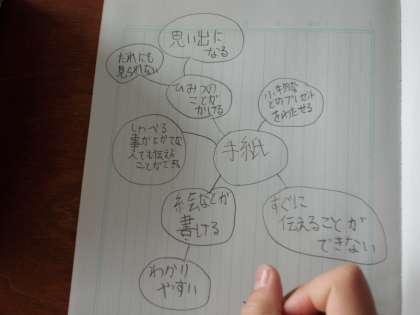 思い出に
なる
だれにも
見られない
ひみつの
ことが
かける
小さな
などのプレゼント
をわたせる
しゃべる
事がとくいでない
人でも伝える
ことができる
手紙
絵などが
書ける
すぐに
伝えることが
できない
わかり
やすい